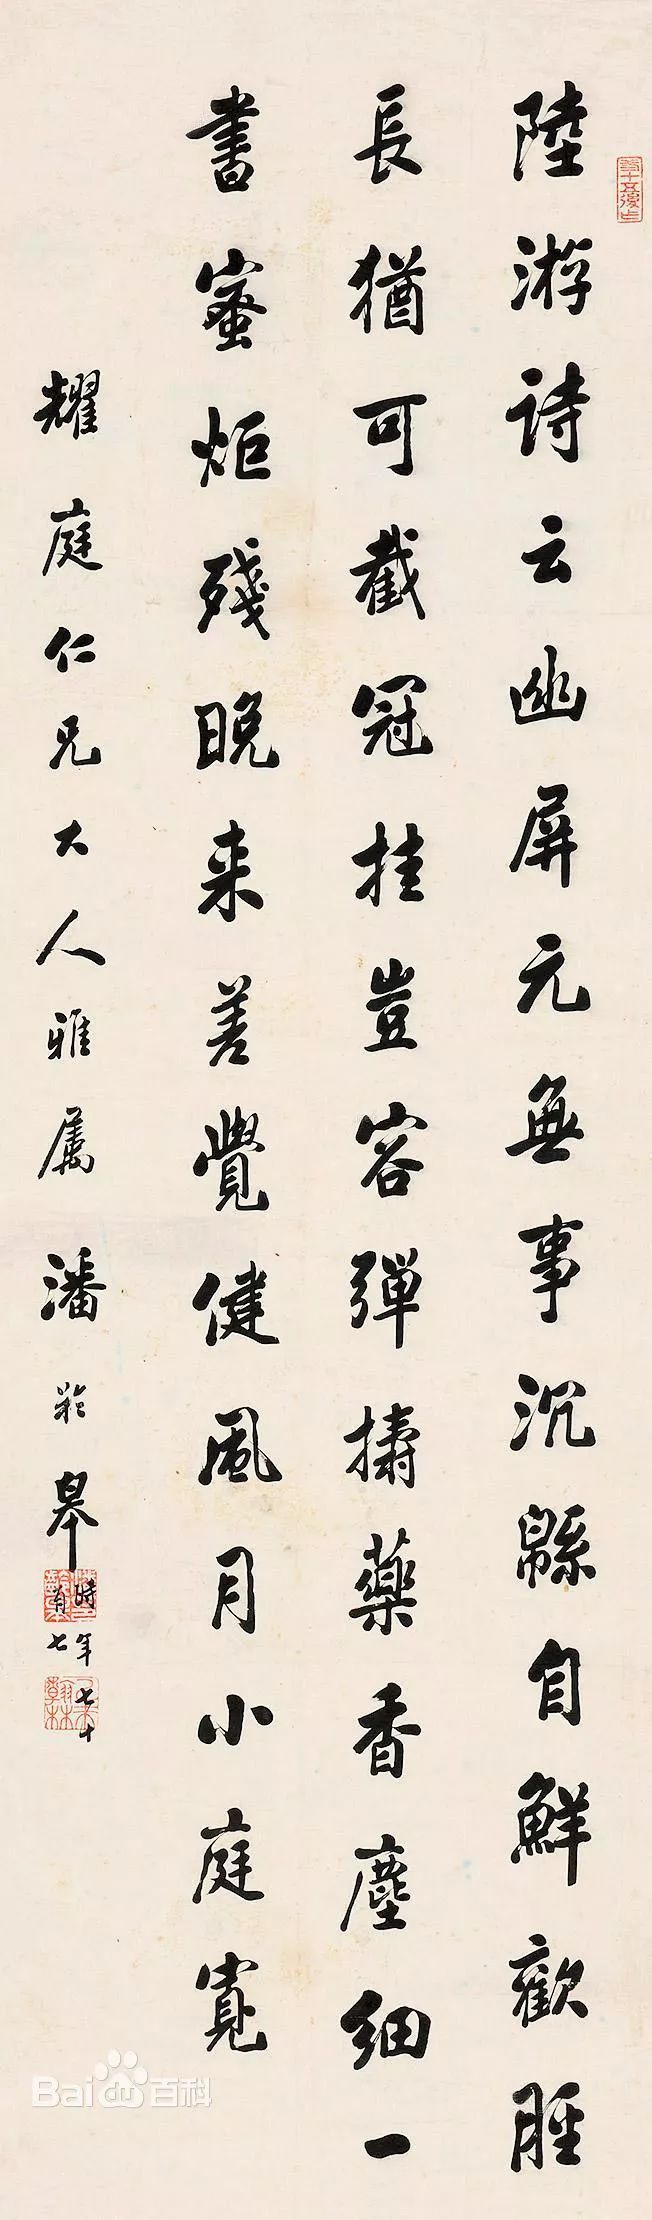 陸游詩云幽屏元無事沉緜自鮮歡脛
長猶可截冠挂豈容彈擣藥香塵細一
書蜜炬殘晚来差覺健風月小庭寬
耀庭仁兄大人雅屬潘齡皋
時年七十
有七
Bai 百科